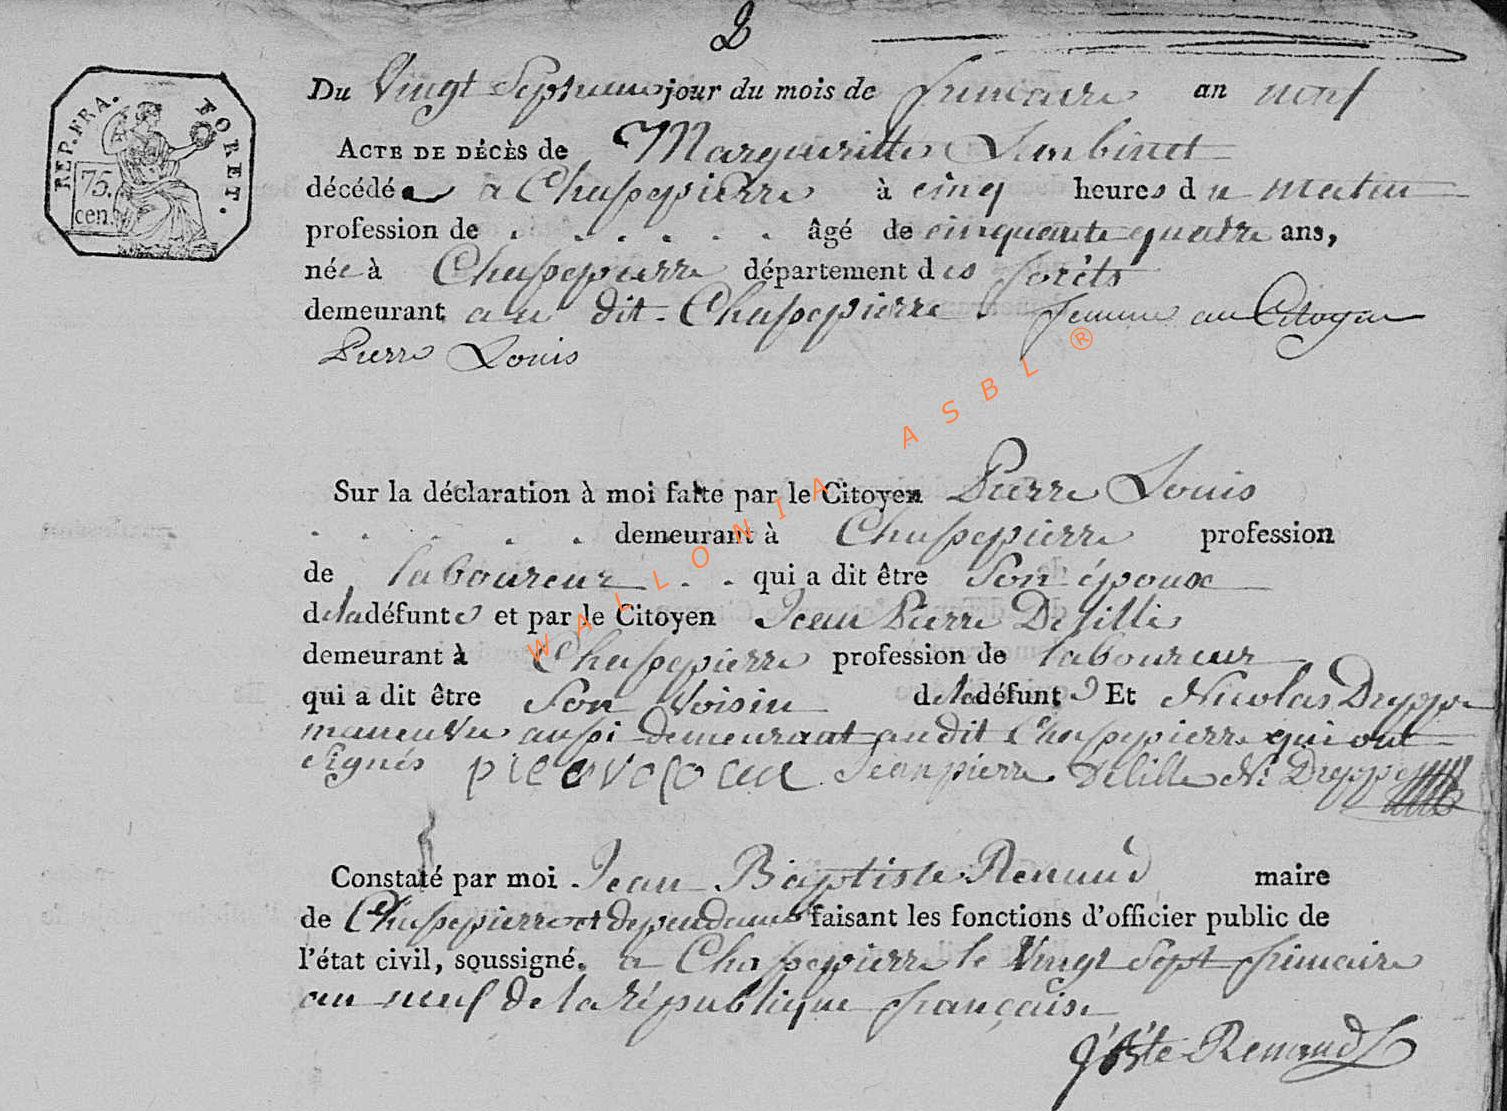 2
REP. FRA. FORET.
75.
cen.
Du Vingt Septieme jour du mois de frimaire an neuf
ACTE DE DÉCÈS de Margueritte
décédée à Chassepierre à cinq heures du matin
profession de . . . . . . âgé de cinquante quatre ans,
née à Chassepierre département des forêts
demeurant au dit Chassepierre femme au Citoyen
Pierre Louis
Sur la déclaration à moi faite par le Citoyen Pierre Louis
. . . . . demeurant à Chassepierre profession
de laboureur . . qui a dit être Son époux
de la défunte et par le Citoyen Jean Pierre Delille
demeurant à Chassepierre profession de laboureur
qui a dit être Son Voisin de la défunte Et Nicolas Dreppe
maneuvre aussi demeurant au dit Chassepierre qui ont
signés Jean pierre Delille Ni Dreppe
Constaté par moi Jean Baptiste Renaud maire
de Chassepierre et dependances faisant les fonctions d'officier public de
l'état civil, soussigné. a Chassepierre le Vingt Sept frimaire
an neuf de la république française
Renaud
WALLONIA ASBL ®